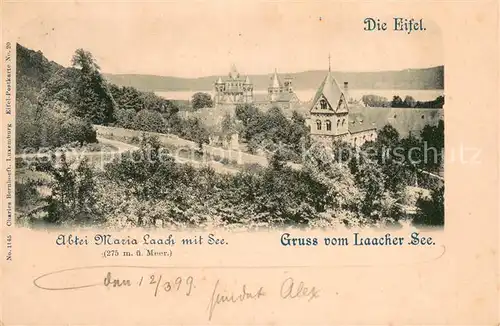 Die Eifel.
No. 1165 Charles Bernhoeft, Luxemburg Eifel-Postkarte No. 29
Abtei Maria Laach mit See.
(275 m. ü. Meer.)
Gruss vom Laacher See.
den 12/3 99.
Alex